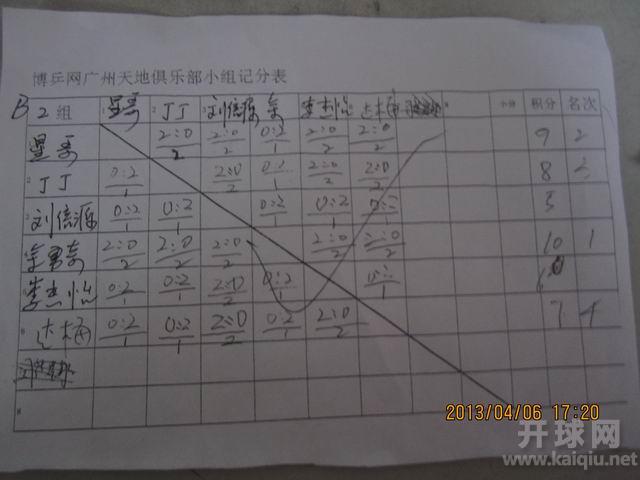 博乒网广州天地俱乐部小组记分表
B 2组 星哥 丁丁 刘信源 李杰怡 达椿 小分 积分 名次
星哥 2:0/2 2:0/2 0:2/1 2:0/2 2:0/2 9 2
丁丁 0:2/1 2:0/2 0:2/1 2:0/2 2:0/2 8 3
刘信源 0:2/1 0:2/1 0:2/1 0:2/1 0:2 5
2:0/2 2:0/2 2:0/2 2:0/2 2:0/2 10 1
李杰怡 0:2/1 0:2/1 2:0/2 0:2/1 0:2/1 6
达 0:2/1 0:2/1 2:0/2 0:2/1 2:0/2 7 4
2013/04/06 17:20
开球网
www.kaiqiu.net